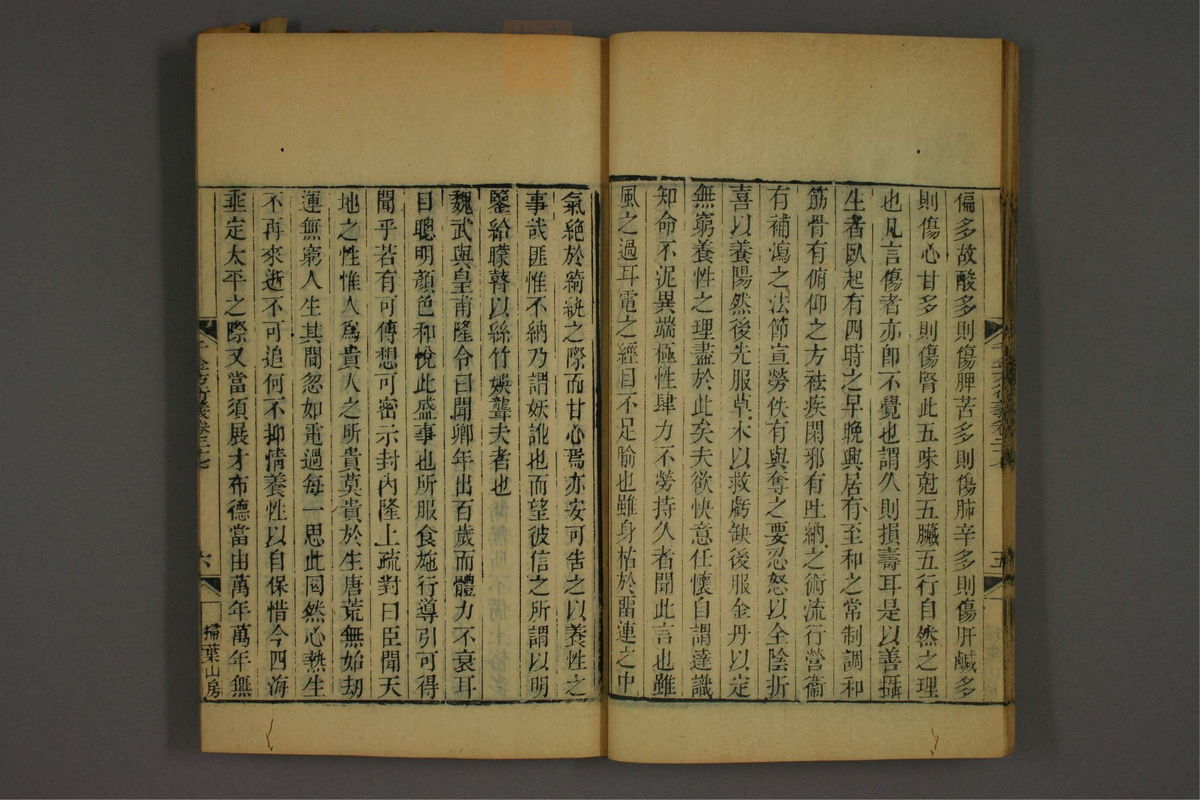 偏多故酸多則傷脾苦多則傷肺辛多則傷肝鹹多
則傷心甘多則傷腎此五味尅五臟五行自然之理
也凡言傷者亦卽不覺也謂久則損壽耳是以善攝
生者臥起有四時之早晚興居有至和之常制調和
筋骨有俯仰之方袪疾閑邪有吐納之術流行營衞
有補瀉之法節宣勞佚有與奪之要忍怒以全陰折
喜以養陽然後先服草木以救虧缺後服金丹以定
無窮養性之理盡於此矣夫欲快意任懷自謂達識
知命不泥異端極性肆力不勞持久者聞此言也雖
風之過耳電之經目不足喻也雖身枯於畱連之中
氣絶於綺紈之際而甘心焉亦安可吿之以養性之
事哉匪惟不納乃謂妖訛也而望彼信之所謂以明
鑒給矇瞽以絲竹娛聾夫者也
魏武與皇甫隆令曰聞卿年出百歲而體力不衰耳
目聰明顏色和悅此盛事也所服食施行導引可得
聞乎若有可傳想可密示封內隆上疏對曰臣聞天
地之性惟人爲貴人之所貴莫貴於生唐荒無始劫
運無窮人生其間忽如電過每一思此罔然心熱生
不再來逝不可追何不抑情養性以自保惜今四海
垂定太平之際又當須展才布德當由萬年萬年無
千金方衍義卷二十七
六
掃葉山房
五